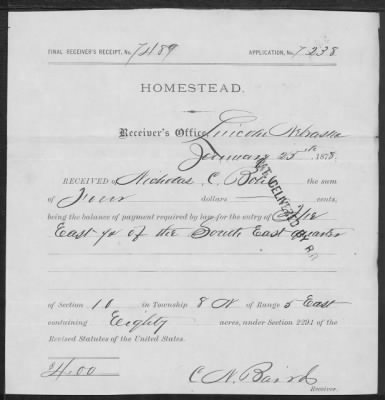 FINAL RECEIVER'S RECEIPT, No. 7489 APPLICATION, No. 7238
HOMESTEAD.
Receiver's Office, Lincoln Nebraska
January 25th 1878.
RECEIVED of Nicholas C. the sum
of Four dollars cents;
being the balance of payment required by law for the entry of The
East ½ of the South East quarter
of Section 10 in Township 8 N of Range 5 East
containing Eighty acres, under Section 2291 of the
Revised Statutes of the United States.
$4.00
C. N. Baird
Receiver.
DELIVERED BY